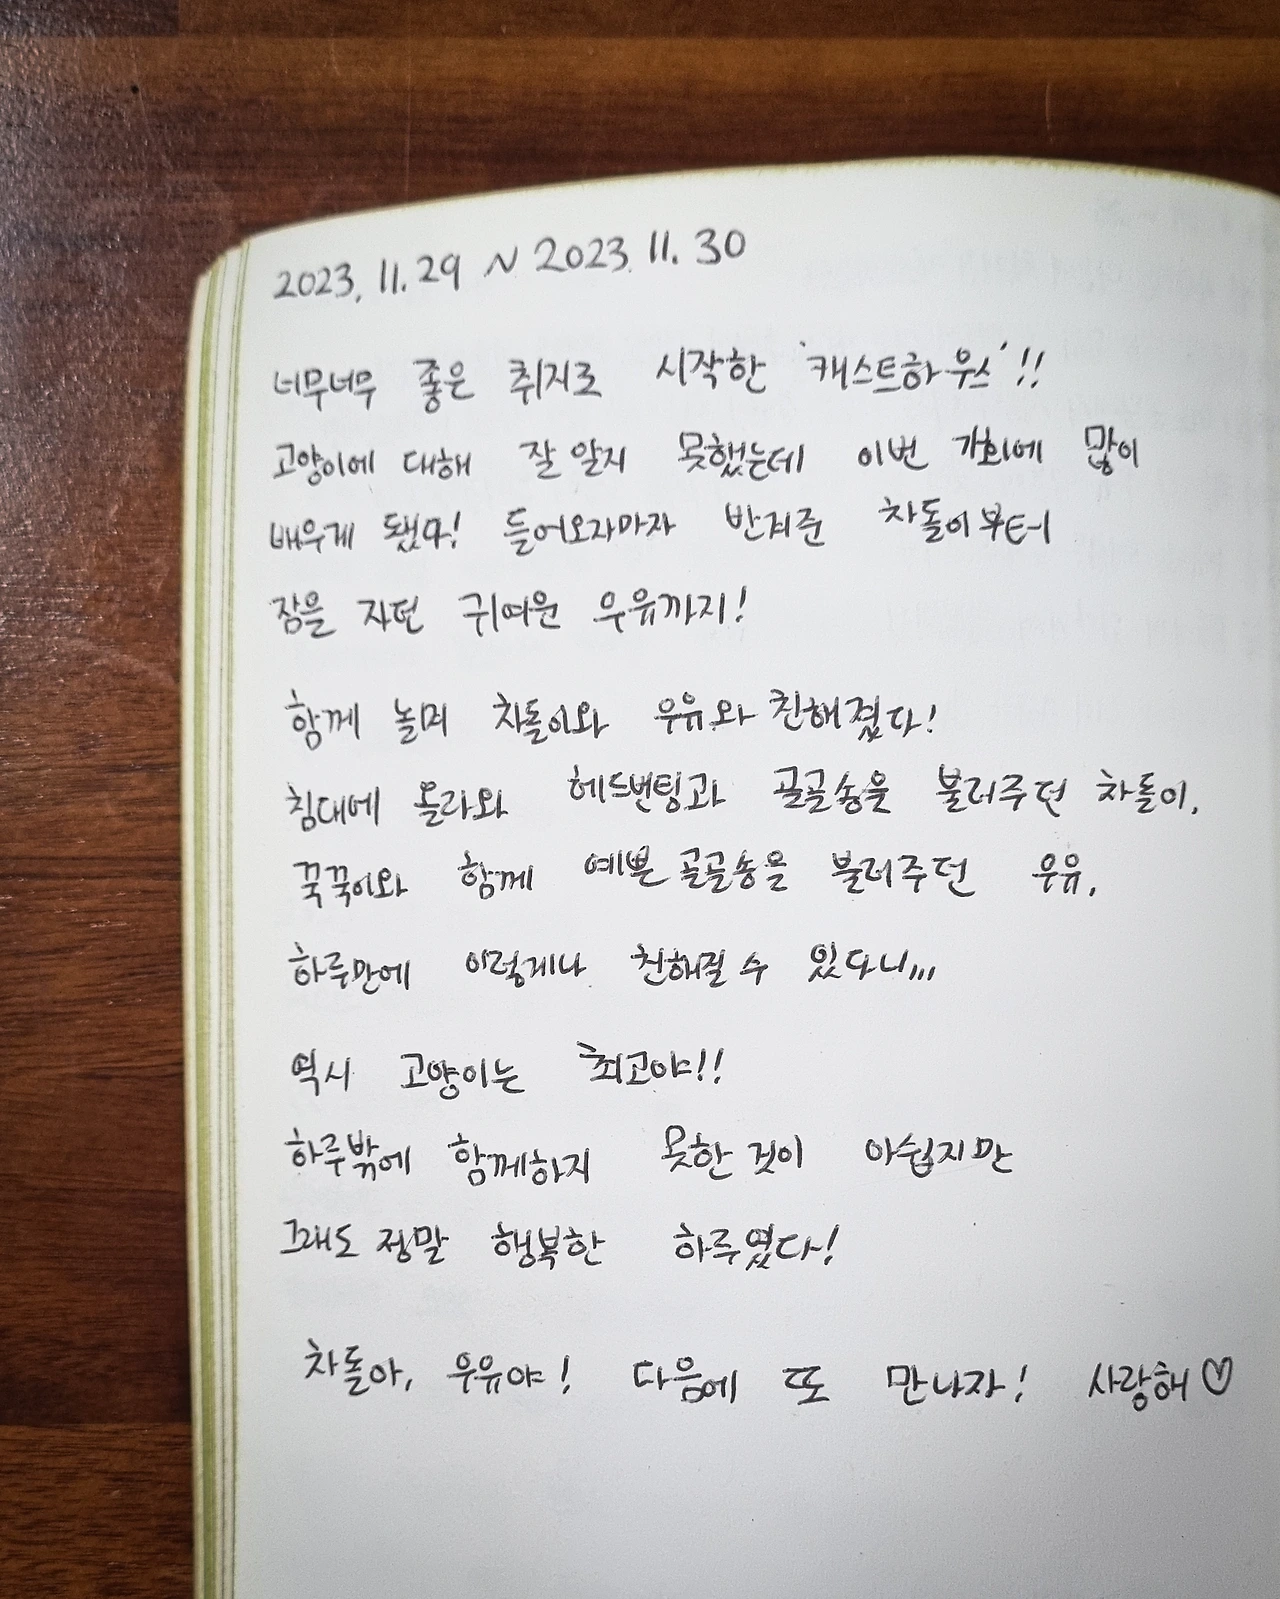 2023. 11. 29 ~ 2023. 11. 30
너무너무 좋은 취지로 시작한 '캐스트하우스'!!
고양이에 대해 잘 알지 못했는데 이번 기회에 많이
배우게 됐다! 들어오자마자 반겨준 차돌이부터
잠을 자던 귀여운 우유까지!
함께 놀며 차돌이와 우유와 친해졌다!
침대에 올라와 헤드번팅과 골골송을 불러주던 차돌이,
꾹꾹이와 함께 예쁜 골골송을 불러주던 우유,
하루만에 이렇게나 친해질 수 있다니,,,
역시 고양이는 최고야!!
하루밖에 함께하지 못한 것이 아쉽지만
그래도 정말 행복한 하루였다!
차돌아, 우유야! 다음에 또 만나자! 사랑해♡